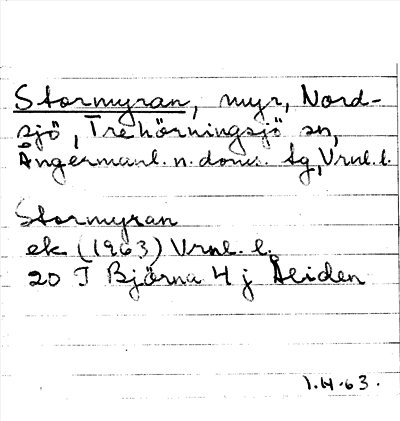 Stormyran, myr, Nord-
sjö, Trehörningsjö sn,
Ångermanl. n. doms. tg, Vrnl. l.
Stormyran
ek (1963) Vrnl. l.
20 I Björna 4 j Åliden
I.H.63.